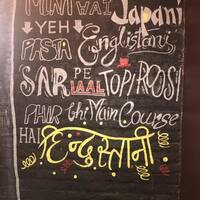 MINI WAI Japani
YEH PASTA Englistani
SAR PE LAAL TOPI ROOSI
PHIR bhi Main Course
HAI हिन्दुस्तानी